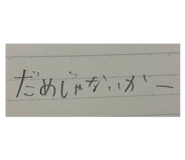 だめじゃないかー